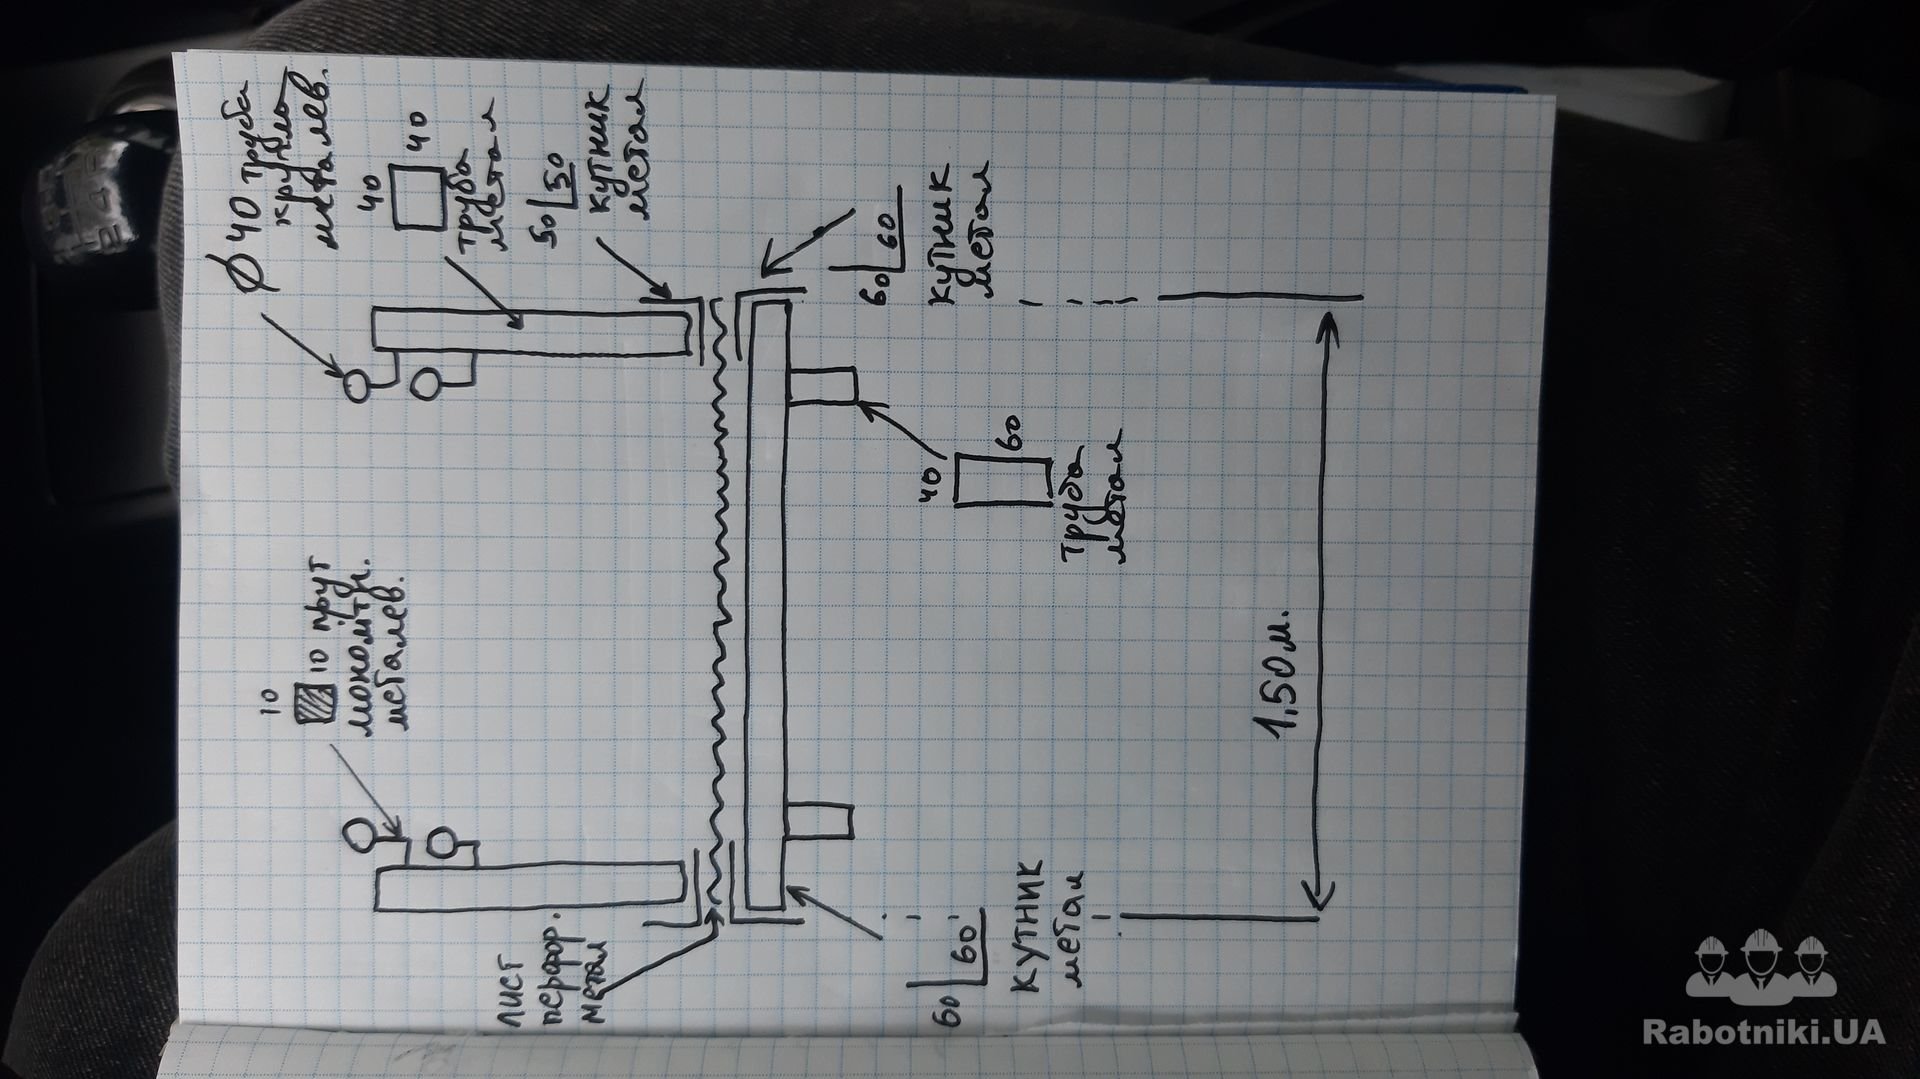 10
10 прут
металев.
Ø 40 труба
кругла
металев.
40
40
труба
метал
50
50
кутник
метал
лист
перфор.
метал
60
60
кутник
метал
40
60
труба
метал
60
60
кутник
метал
1,50 м.
Rabotniki.UA